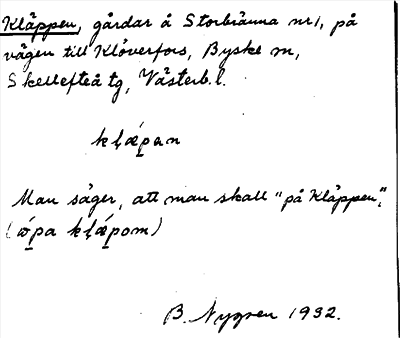 Kläppen, gårdar å Storbränna nr 1, på
vägen till Klöverfors, Byske sn,
Skellefteå tg, Västerb. l.
kl̥ǽpan
Man säger, att man skall "på Kläppen",
(ǿpa kl̥ǽpom)
B. Nygren 1932.